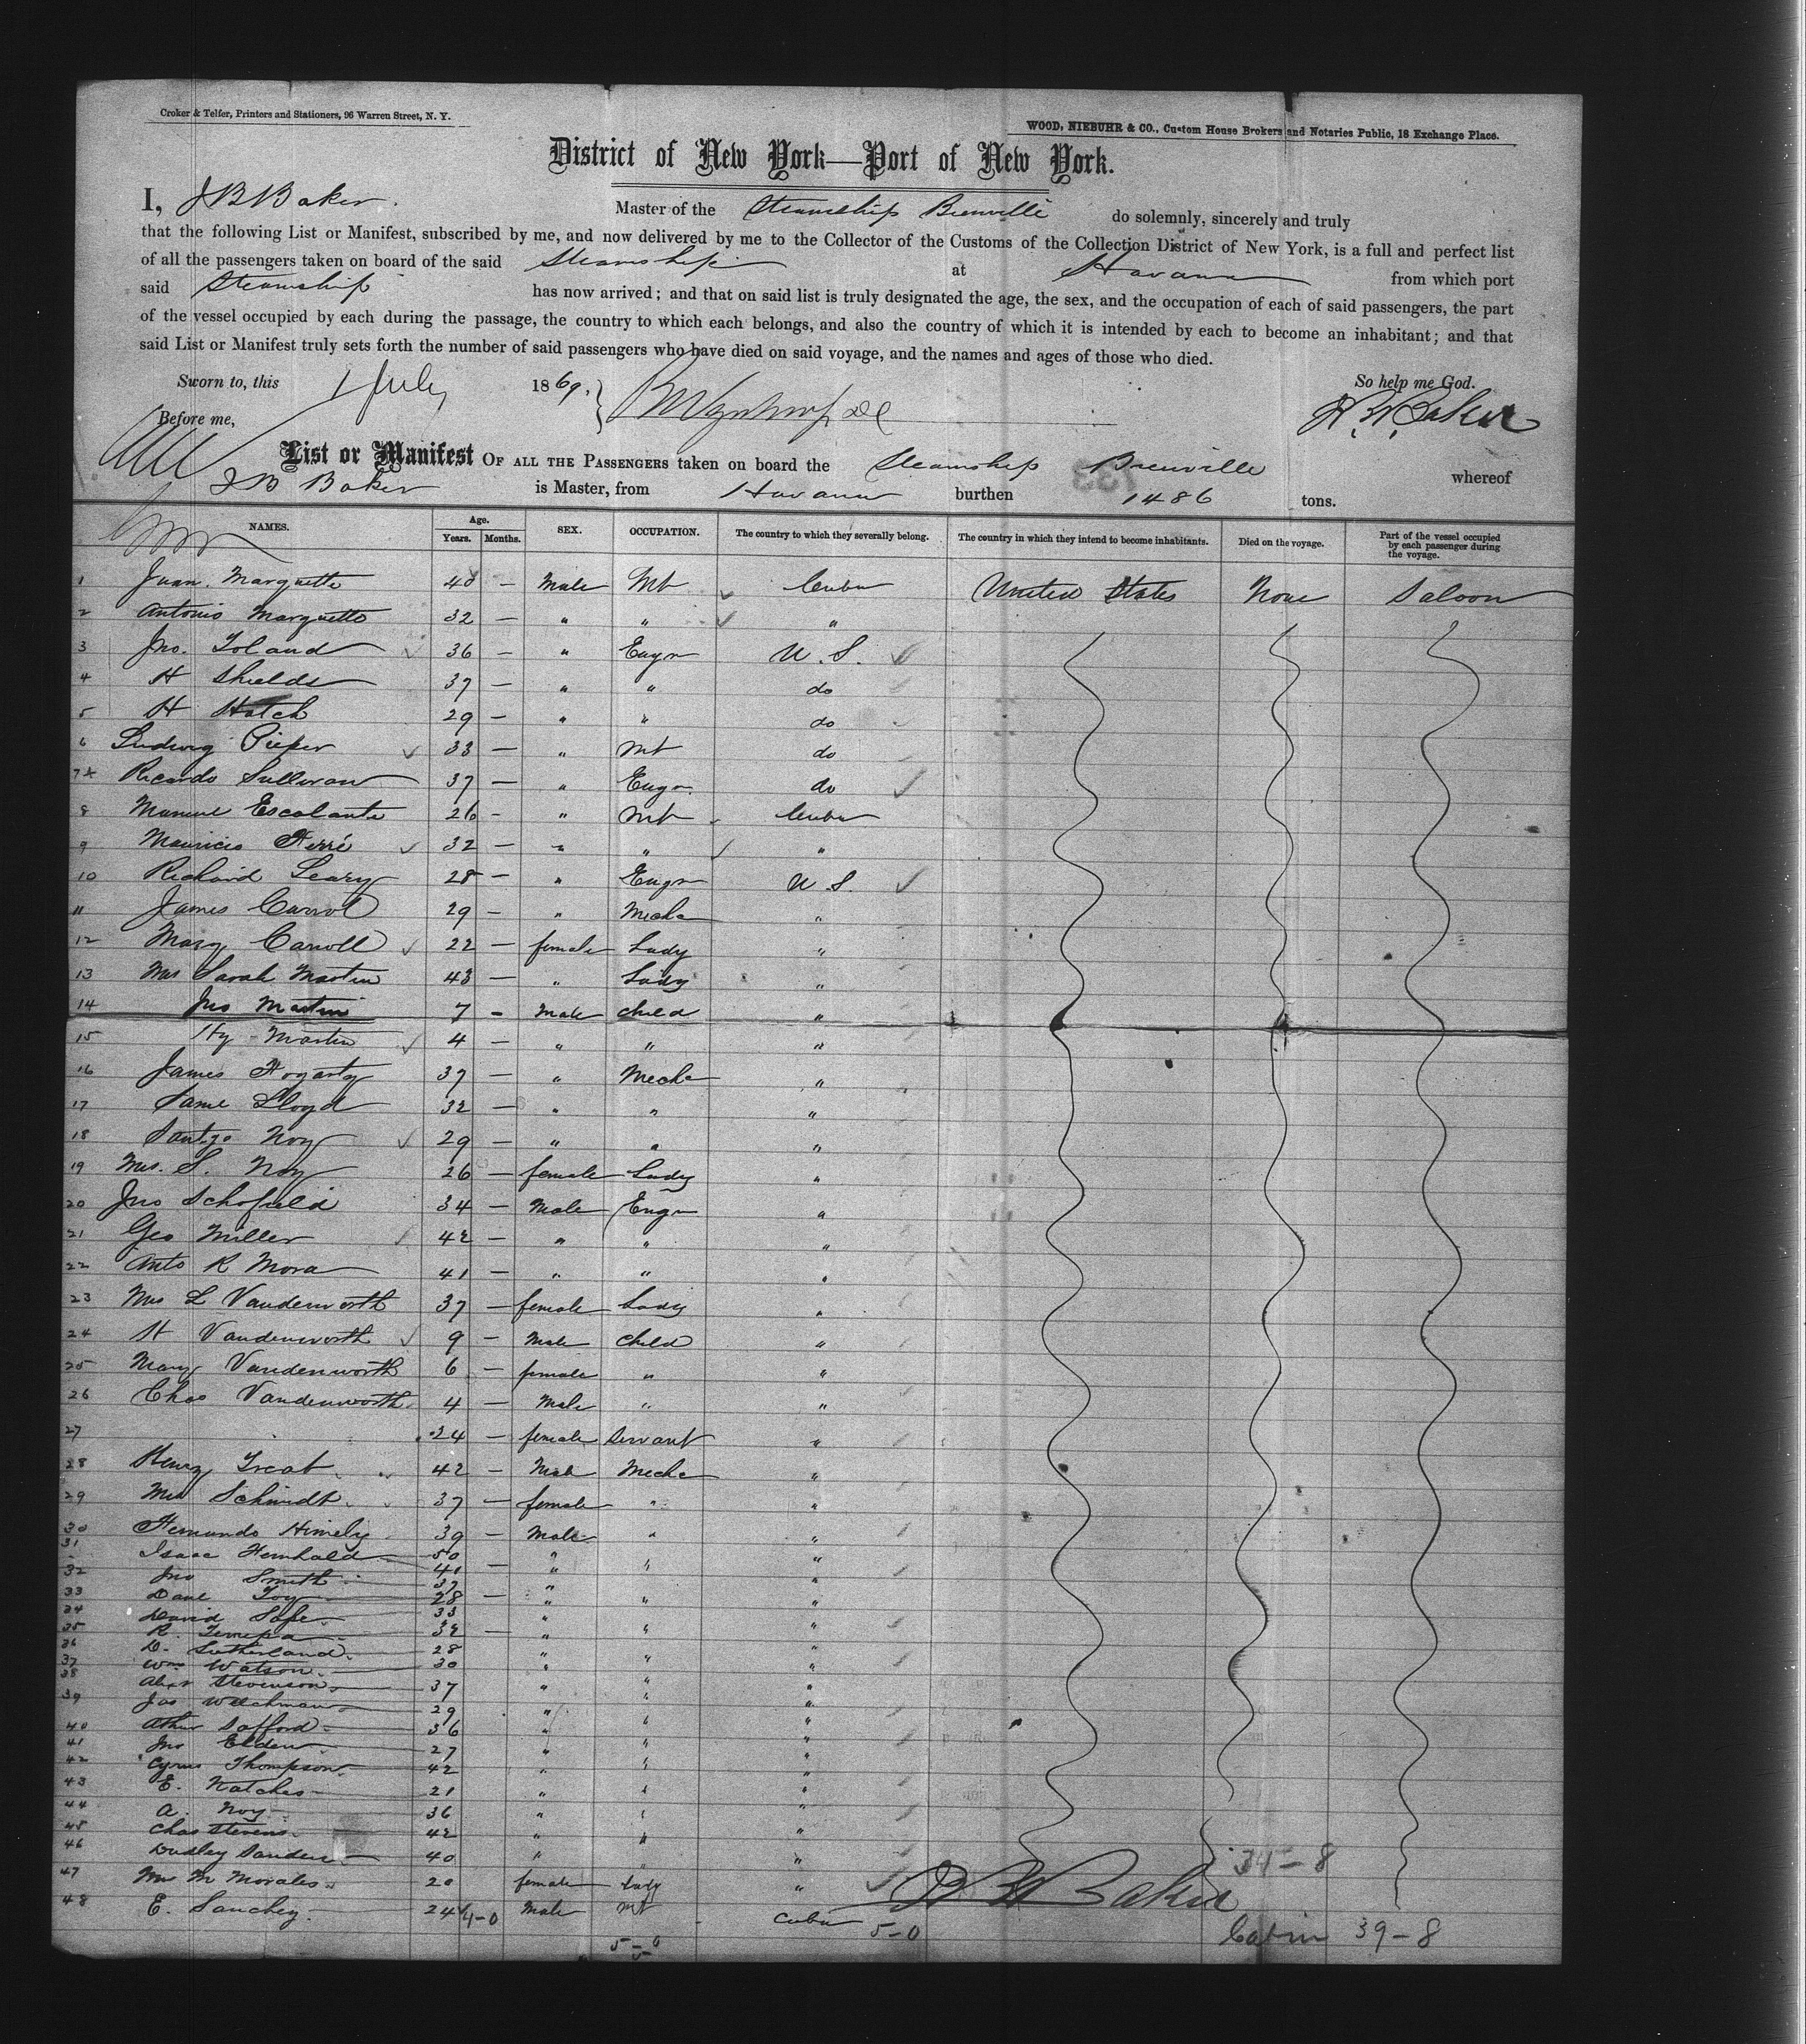 Croker & Telfer, Printers and Stationers, 96 Warren Street, N. Y.
WOOD, NIEBUHR & CO., Custom House Brokers and Notaries Public, 18 Exchange Place.
District of New York—Port of New York.
I, J B Baker. Master of the Steamship Bienville do solemnly, sincerely and truly
that the following List or Manifest, subscribed by me, and now delivered by me to the Collector of the Customs of the Collection District of New York, is a full and perfect list
of all the passengers taken on board of the said Steamship at Havana from which port
said Steamship has now arrived; and that on said list is truly designated the age, the sex, and the occupation of each of said passengers, the part
of the vessel occupied by each during the passage, the country to which each belongs, and also the country of which it is intended by each to become an inhabitant; and that
said List or Manifest truly sets forth the number of said passengers who have died on said voyage, and the names and ages of those who died.
Sworn to, this 1 July 1869. So help me God.
Before me, Baker
List or Manifest OF ALL THE PASSENGERS taken on board the Steamship Bienville whereof
J B Baker is Master, from Havana burthen 1486 tons.
NAMES. Age. Years. Months. SEX. OCCUPATION. The country to which they severally belong. The country in which they intend to become inhabitants. Died on the voyage. Part of the vessel occupied by each passenger during the voyage.
1 Juan Marquette 40 — Male Mt Cuba United States None Saloon
2 Antonio Marquette 32 — " " "
3 Jno. Toland 36 — " Engr U. S.
4 H Shields 37 — " " do
5 H Hatch 29 — " " do
6 Ludwig Pieper 33 — " Mt do
7 Ricardo Sullivan 37 — " Engr. do
8 Manuel Escalante 26 — " Mt Cuba
9 Mauricio Ferré 32 — " " "
10 Richard Leary 28 — " Engr U S.
11 James Carrol 29 — " Mecha "
12 Mary Carroll 22 — female Lady "
13 Mrs Sarah Martin 43 — " Lady "
14 Jno Martin 7 — Male child "
15 Hy Martin 4 — " " "
16 James Fogarty 37 — " Mecha "
17 Saml Lloyd 32 — " " "
18 Santgo Noy 29 — " " "
19 Mrs. S. Noy 26 — female Lady "
20 Jno Schofield 34 — Male Engr "
21 Geo Miller 42 — " " "
22 Anto R Mora 41 — " " "
23 Mrs L Vandenworth 37 — female Lady "
24 H Vandenworth 9 — Male child "
25 Mary Vandenworth 6 — female " "
26 Chas Vandenworth 4 — Male " "
27 24 — female Servant "
28 Henry Treat 42 — Male Mecha "
29 Mrs Schmidt 37 — female " "
30 Fernando Himely 39 — Male " "
31 Isaac Hernhald 50 " " "
32 Jno Smith 41 — " "
33 Danl Foy 37 " " "
34 David 28 — " "
35 R. 33 " " "
36 D. Sutherland 32 — " "
37 Wm Watson 28 " " "
38 Alexr Stevenson 30 " " "
39 Jas Welchman 37 " " "
40 Athur Safford 29 " " "
41 Jno Elden 36 " " "
42 Cyrus Thompson 27 " " "
43 E. Natches 42 " " "
44 A. Noy 21 " " "
45 Chas Stevens 36 " " "
46 Dudley Sanders 42 " " "
40 " "
47 Mrs M Morales 20 female Lady "
48 E. Sanchez 24 Male Mt Cuba
34—8
Baker
4—0 5—0 5—0
Cabin 39—8